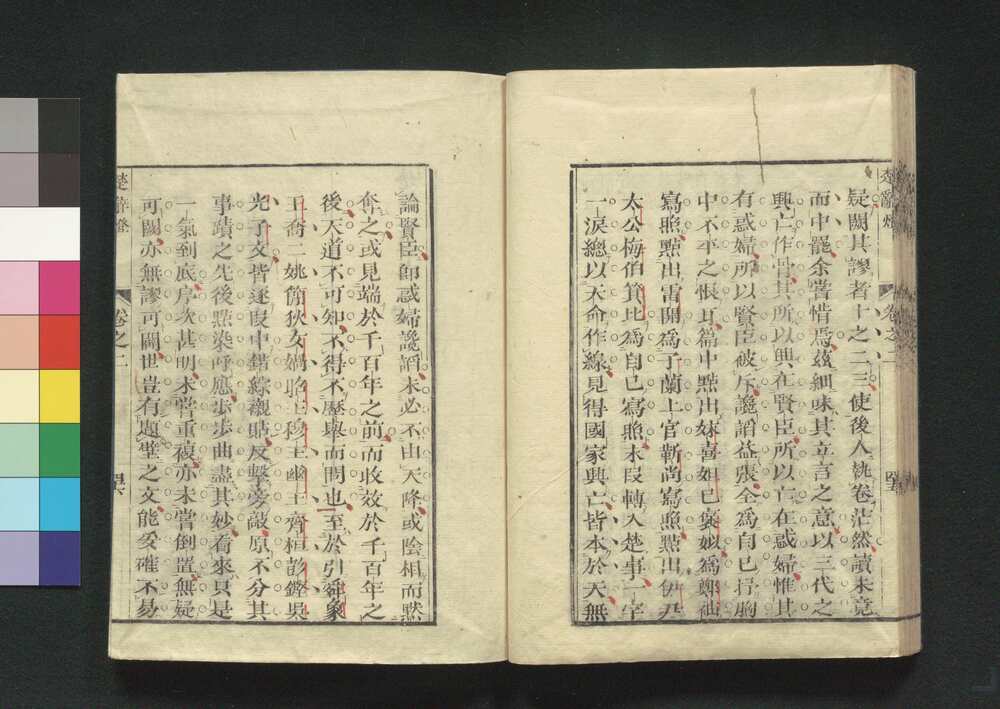 楚辭燈
卷之二
疑闕其謬者十之二三使後人執卷茫然讀未竟
而中罷余嘗惜焉茲細味其立言之意以三代之
興亡作骨其所以興在賢臣所以亡在惑婦惟其
有惑婦所以賢臣被斥讒謟益張全為自己抒胸
中不平之恨耳篇中點出妹喜妲己褒姒為鄭袖
寫照點出雷開為子蘭上官靳尚寫照點出伊尹
太公梅伯箕比為自己寫照末段轉入楚事一字
一淚總以天命作線見得國家興亡皆本於天無
論賢臣即惑婦讒謟未必不由天降或陰相而默
奪之或見端於千百年之前而收效於千百年之
後天道不可知不得不歷舉而問也至於引舜象
王喬二姚簡狄女媧昭王穆王幽王齊桓彭鏗吳
光子文皆逐段中錯綜襯貼反擊旁敲原不分其
事蹟之先後點染呼應步步曲盡其妙看來只是
一氣到底序次甚明未嘗重複亦未嘗倒置無疑
可闕亦無謬可闢世豈有題壁之文能妥確不易
楚辭燈
卷之二